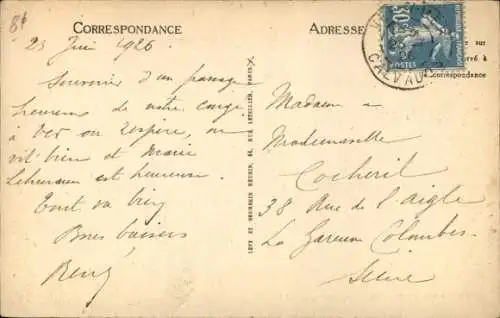 CORRESPONDANCE
ADRESSE
23 Juin 1926
Souvenir d'un passage
heureux de notre congé
à Ver où respire, on
vit bien et Marie
est heureuse.
Tout va bien
Bons baisers
René
LEVY ET NEURDEIN RÉUNIS, 44, RUE LETELLIER, PARIS
Madame
Mademoiselle
Cocheril
38 Rue de l'Aigle
La Garenne Colombes
Seine
POSTES
CALVADOS
correspondance